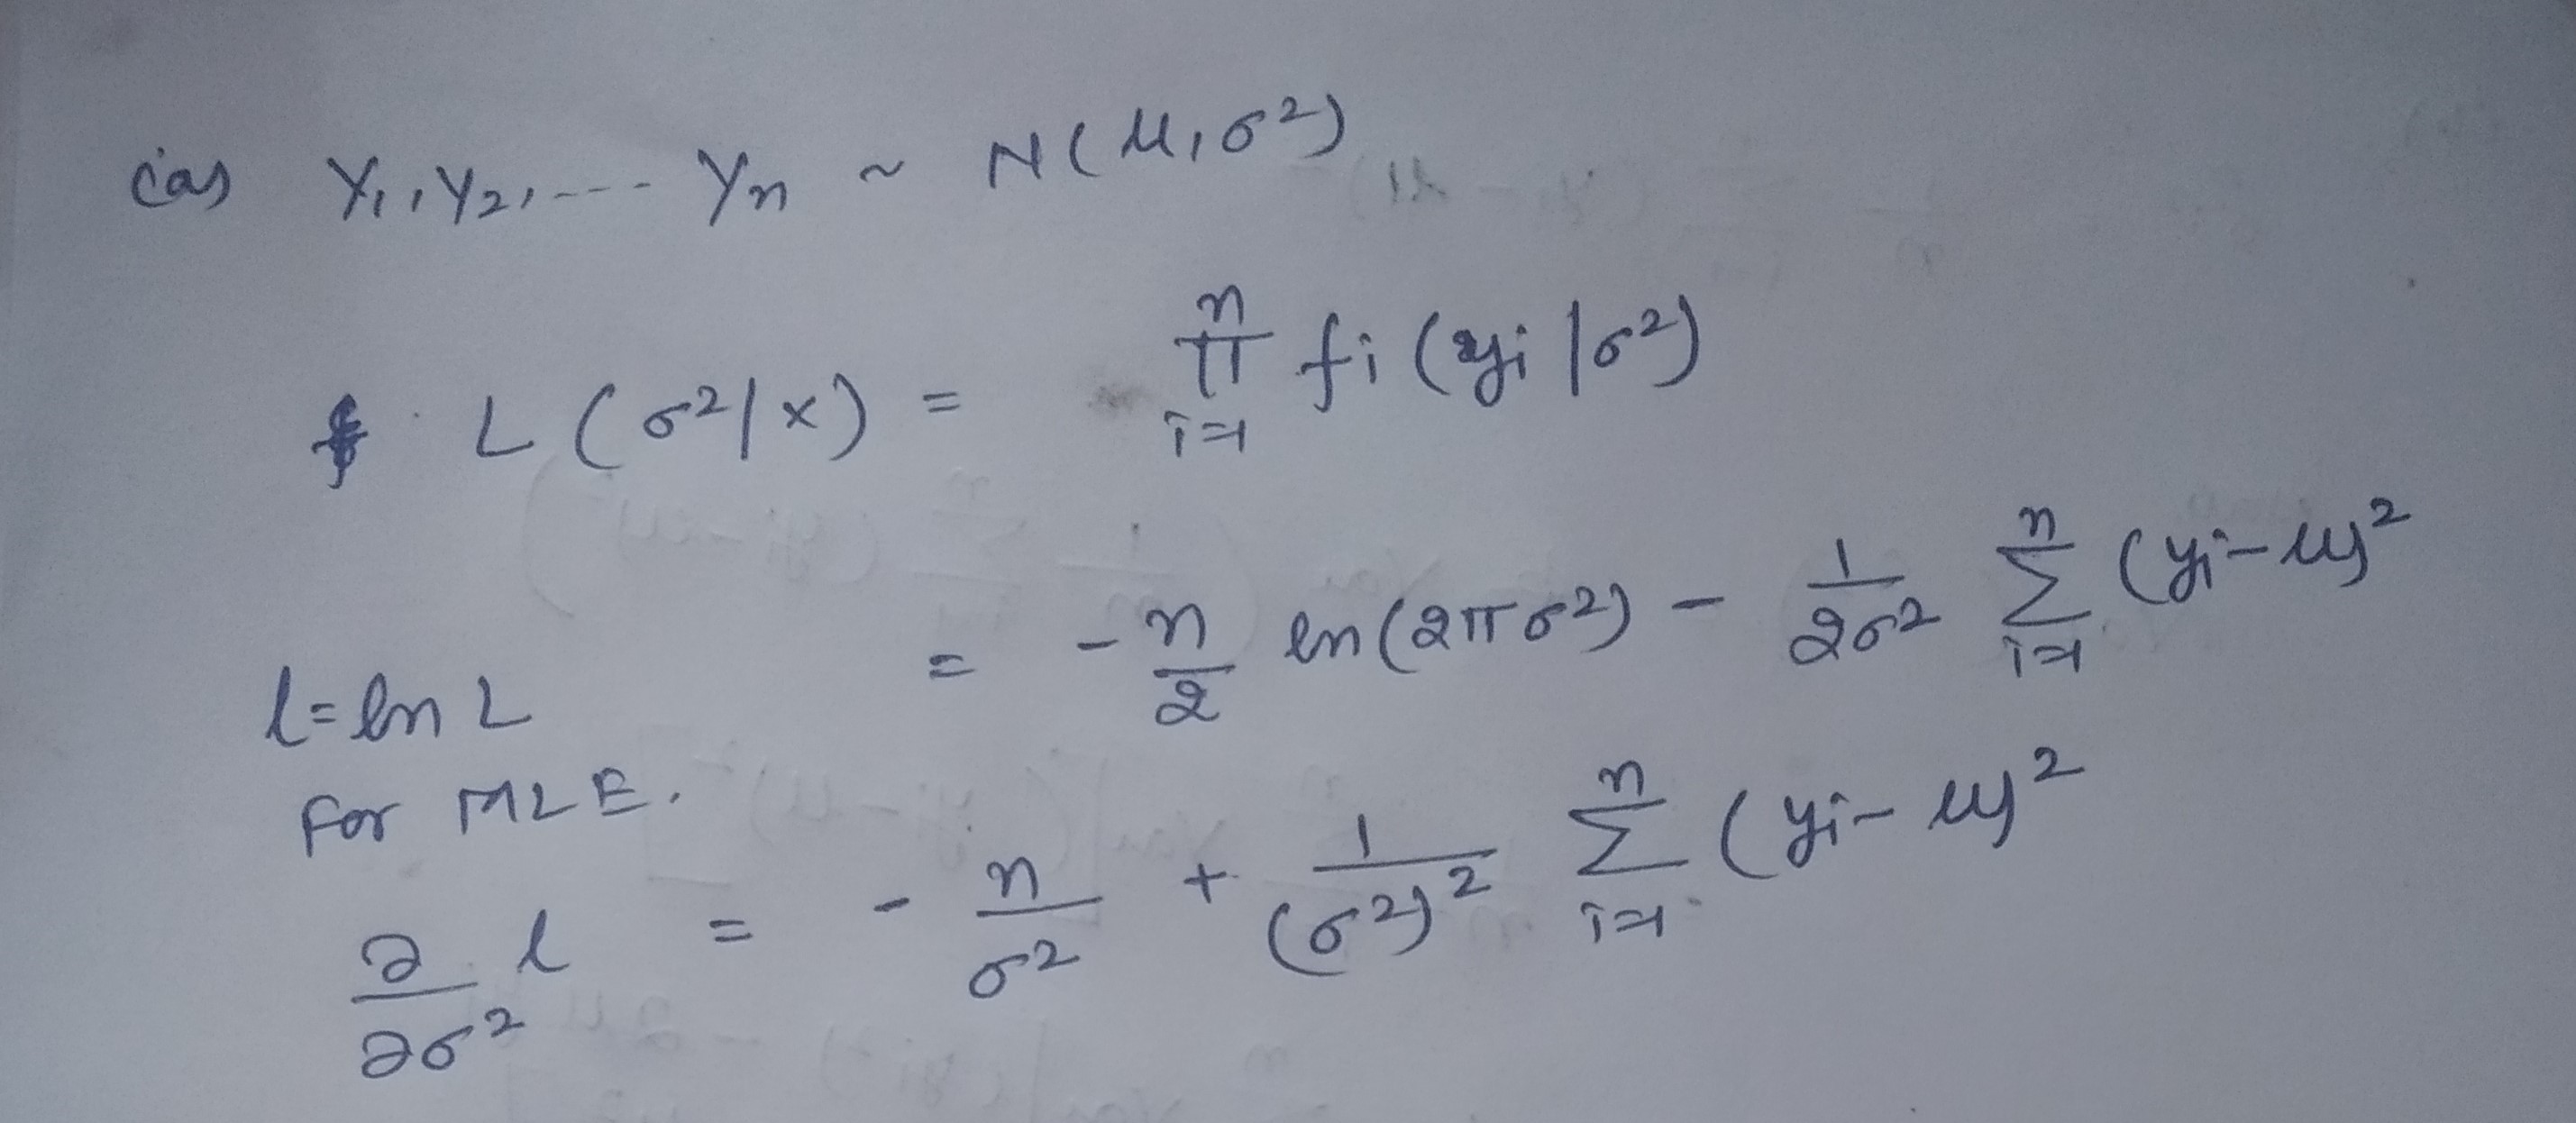 (a) Y₁, Y₂, --- Yn ~ N(μ, σ²)
L(σ²|x) = ∏ᵢ₌₁ⁿ fi(yi|σ²)
l = ln L = -n/2 ln(2πσ²) - 1/2σ² ∑ᵢ₌₁ⁿ (yi-μ)²
For MLE.
∂/∂σ² l = - n/σ² + 1/(σ²)² ∑ᵢ₌₁ⁿ (yi-μ)²